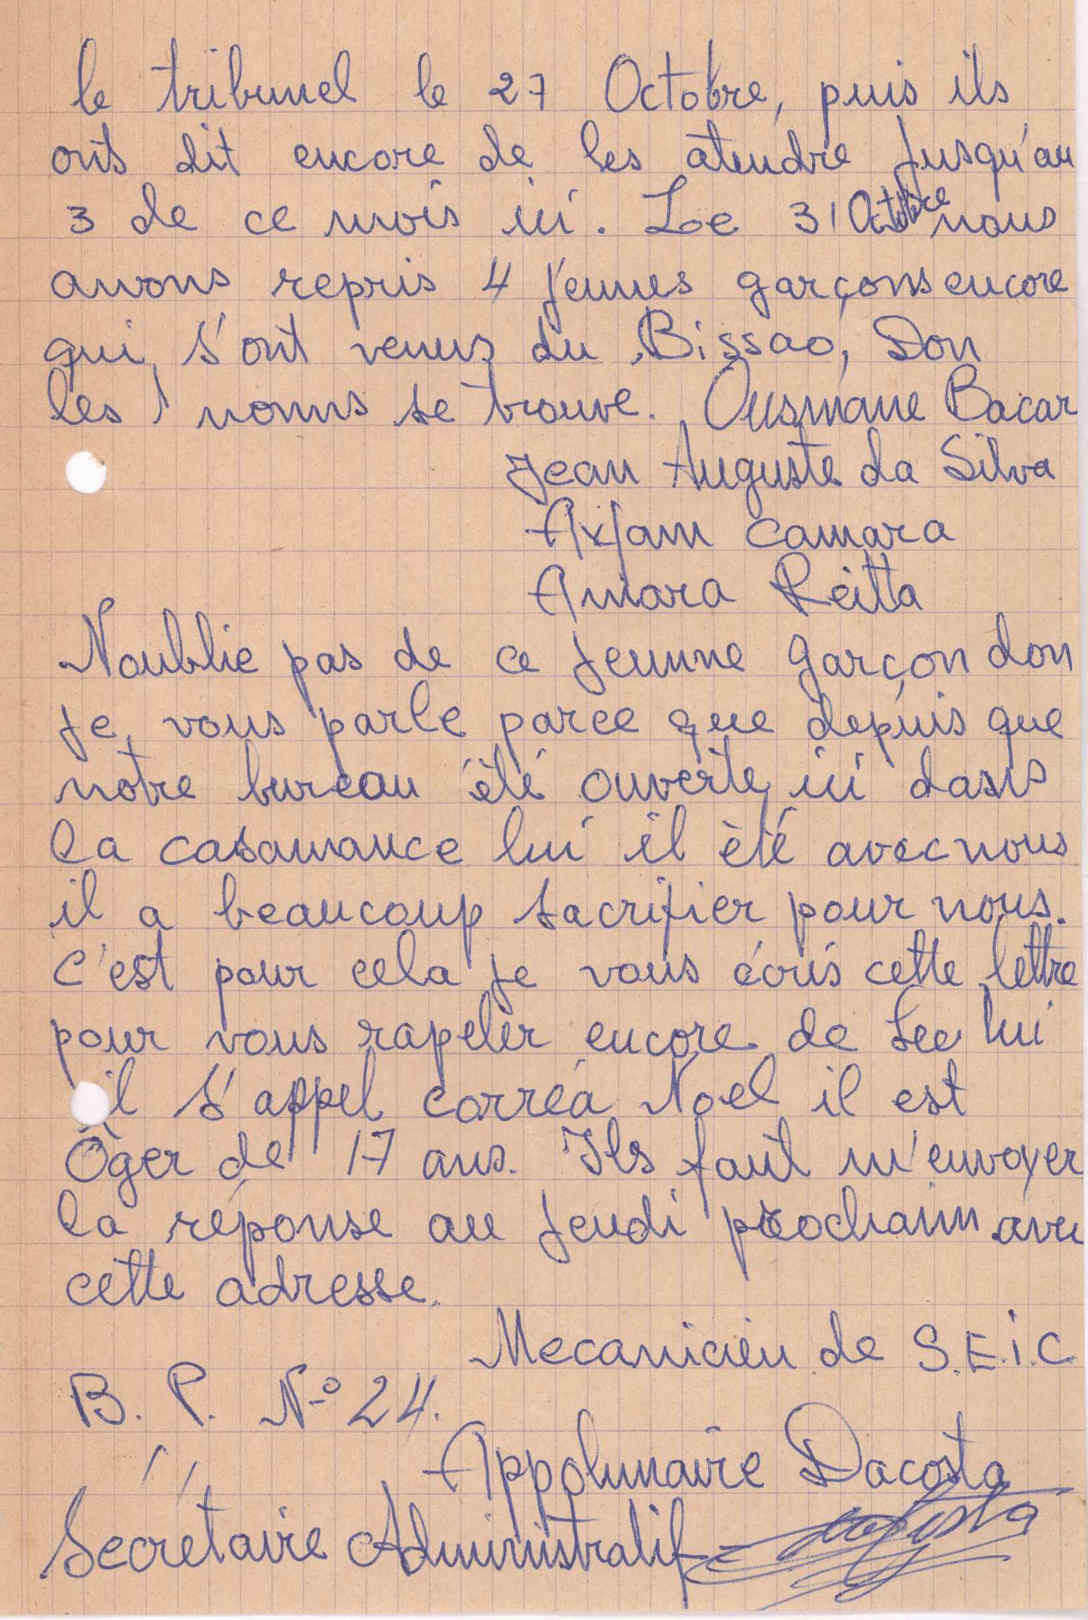 le tribunel le 27 Octobre, puis ils
onts dit encore de les atendre jusqu'au
3 de ce mois ici. Le 31 Octobre nous
avons repris 4 jeunes garçons encore
qui s'ont venus du Bissao, Don
les nonms se trouve. Ousmane Bacar
Jean Auguste da Silva
Axfam Camara
Amara Keitta
N'oublie pas de ce jeunne garçon don
je vous parle parce que depuis que
notre bureau été ouverte ici dans
la casamance lui il été avec nous
il a beaucoup sacrifier pour nous.
C'est pour cela je vous écris cette lettre
pour vous rapeler encore de lui
il s'appel corréa Noel il est
Öger de 17 ans. Ils faut m'envoyer
la réponse au jeudi prochain avec
cette adresse.
Mecanicien de S.E.i.C
B. P. N-o 24.
Appolunaire Dacosta
Secrétaire Administratif